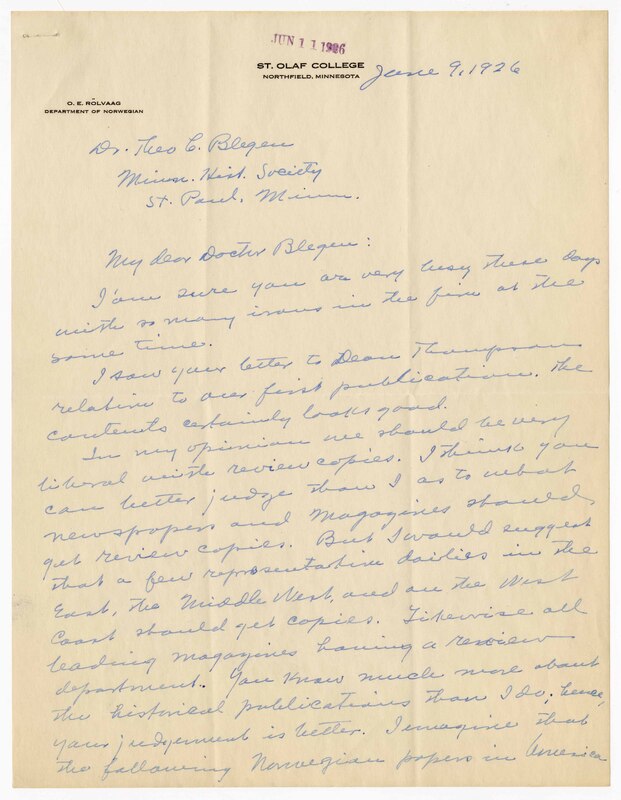 JUN 11 1926
ST. OLAF COLLEGE
NORTHFIELD, MINNESOTA
June 9, 1926
O. E. RÖLVAAG
DEPARTMENT OF NORWEGIAN
Dr. Theo C. Blegen
Minn. Hist. Society
St. Paul, Minn.
My dear Doctor Blegen:
I am sure you are very busy these days
with so many irons in the fire at the
same time.
I saw your letter to Dean Thompson
relation to our first publication. The
contents certainly looks good.
In my opinion we should be very
liberal with review copies. I think you
can better judge than I as to what
newspapers and magazines should
get review copies. But I would suggest
that a few representative dailies in the
East, the Middle West, and on the West
Coast should get copies. Likewise all
leading magazines having a review
department. You know much more about
the historical publications than I do; hence,
your judgement is better. I imagine that
the following Norwegian papers in America